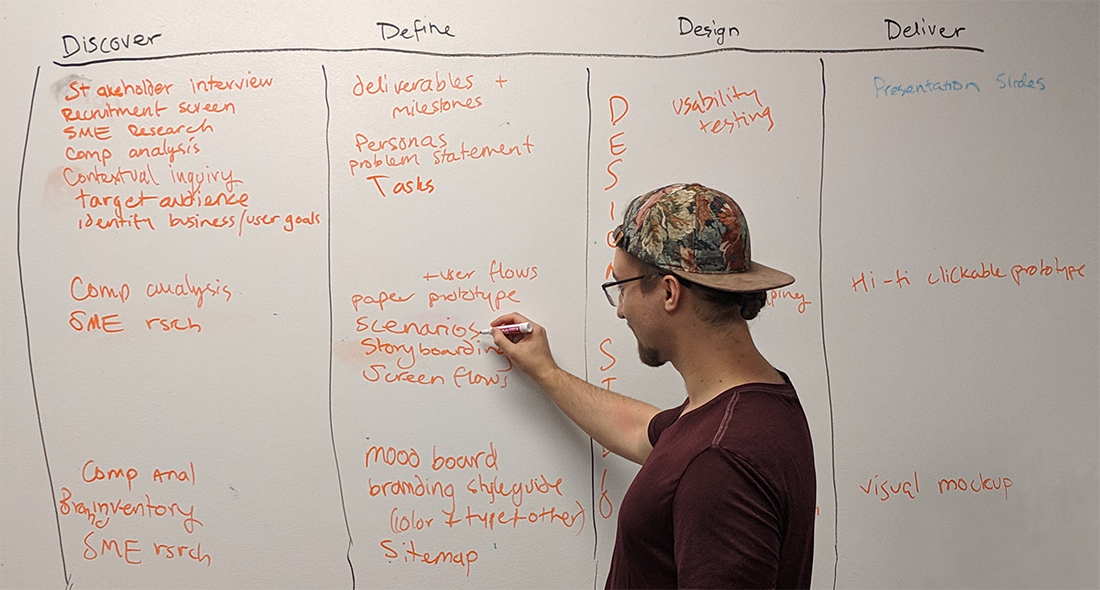 Discover
Define
Design
Deliver
Stakeholder interview
Recruitment screen
SME Research
Comp analysis
Contextual inquiry
target audience
identify business/user goals
Comp analysis
SME rsrch
Comp Anal
Brand inventory
SME rsrch
deliverables +
milestones
Personas
problem statement
Tasks
+user flows
paper prototype
Scenarios
Storyboarding
Screen flows
mood board
branding style guide
(color + type + other)
Sitemap
DESIGN
usability
testing
Presentation Slides
Hi-fi clickable prototype
visual mockup